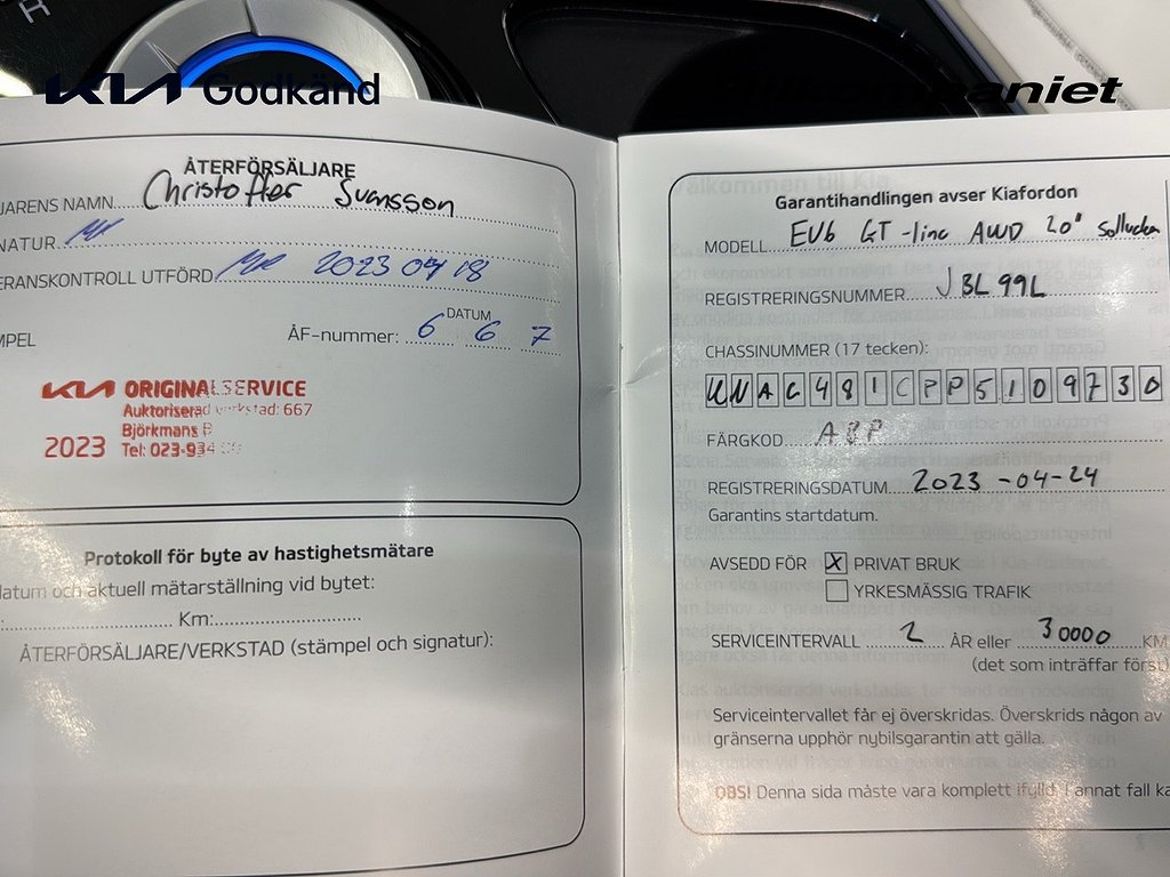 KIA Godkänd
ÅTERFÖRSÄLJARE
JARENS NAMN Christoffer Svensson
NATUR
ERANSKONTROLL UTFÖRD 2023 04 18
DATUM
MPEL
ÅF-nummer: 6 6 7
KIA ORIGINALSERVICE
Auktoriserad verkstad: 667
Björkmans B
2023 Tel: 023-934
Protokoll för byte av hastighetsmätare
datum och aktuell mätarställning vid bytet:
Km:
ÅTERFÖRSÄLJARE/VERKSTAD (stämpel och signatur):
Garantihandlingen avser Kiafordon
MODELL EV6 GT-line AWD 20" Sollucka
REGISTRERINGSNUMMER JBL 99L
CHASSINUMMER (17 tecken):
KNAC481CPP5109730
FÄRGKOD ABP
REGISTRERINGSDATUM 2023-04-24
Garantins startdatum.
AVSEDD FÖR X PRIVAT BRUK
YRKESMÄSSIG TRAFIK
SERVICEINTERVALL 2 ÅR eller 30000 KM
(det som inträffar först)
Serviceintervallet får ej överskridas. Överskrids någon av
gränserna upphör nybilsgarantin att gälla.
OBS! Denna sida måste vara komplett ifylld. I annat fall ka